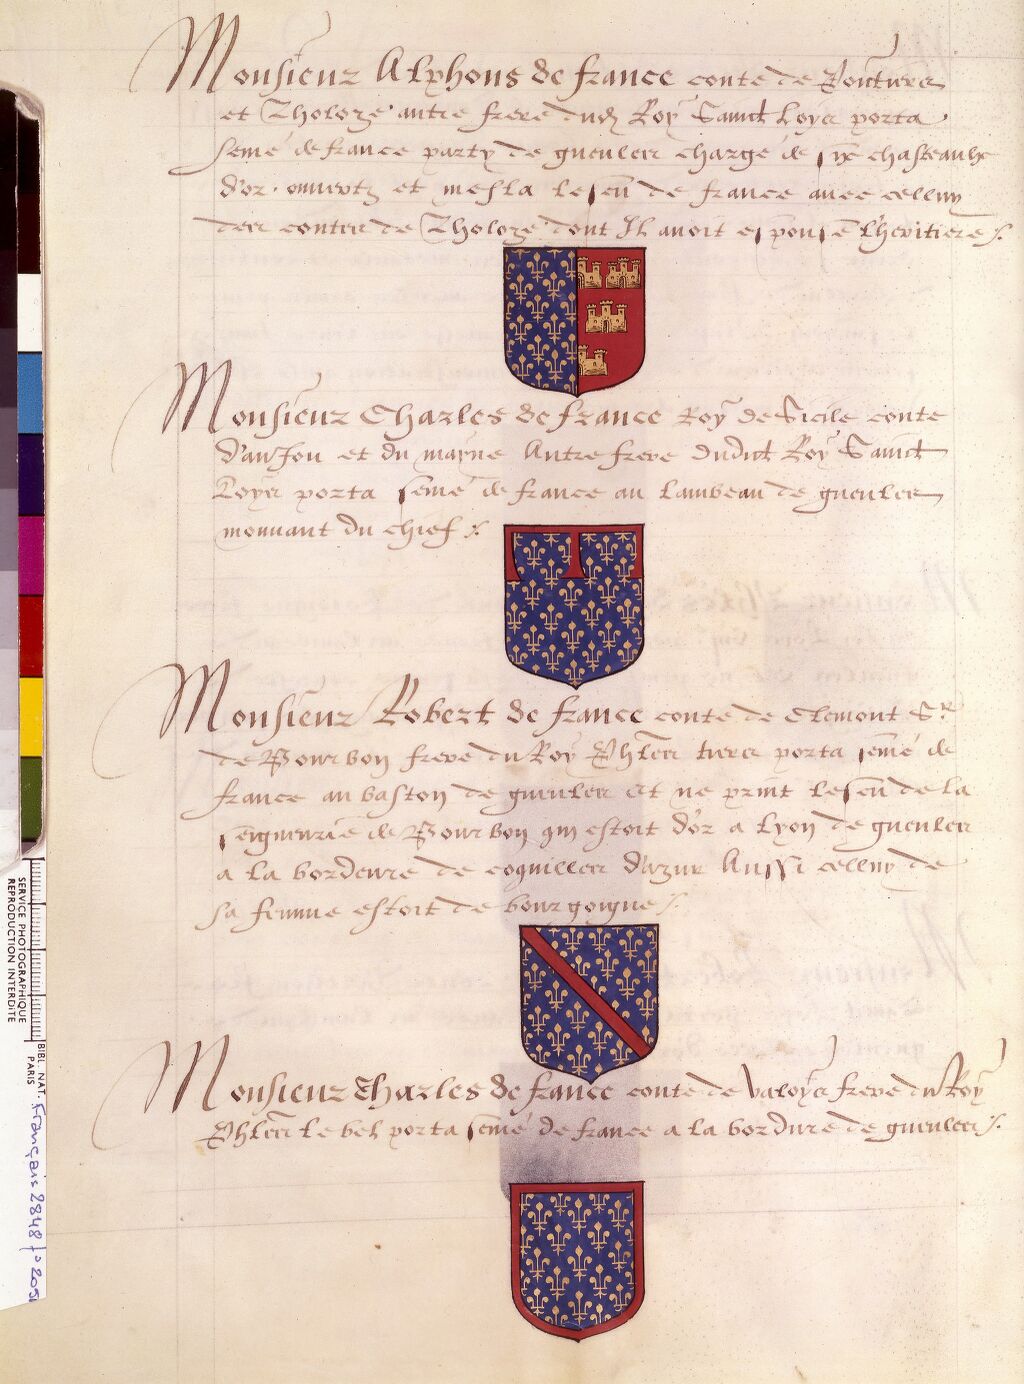 Monsieur Alphons de france conte de Poictiers
et Tholoze autre frere dud Roy Sainct Loys porta
semé de france party de gueulles chargé de six chasteaulx
d'or ouvertz et mesla lescu de france avec celluy
des contes de Tholoze dont Il avoit espousé l'heritiere
Monsieur Charles de france Roy de Sicile conte
d'anJou et du mayne Autre frere dudict Roy Sainct
Loys porta semé de france au lambeau de gueulles
mouvant du chief
Monsieur Robert de france conte de Clemont Sr
de Bourbon frere du Roy Phles tiers porta semé de
france au baston de gueulles Et ne print lescu de la
seigneurie de Bourbon qui estoit d'or a lyon de gueulles
a la bordeure de coquilles d'azur Aussi celluy de
sa femme estoit de bourgoigne
Monsieur Charles de france conte de Valoys frere du Roy
Phles le bel porta semé de france a la bordure de gueulles
SERVICE PHOTOGRAPHIQUE
REPRODUCTION INTERDITE
BIBL. NAT.
PARIS
Français 2848 fo